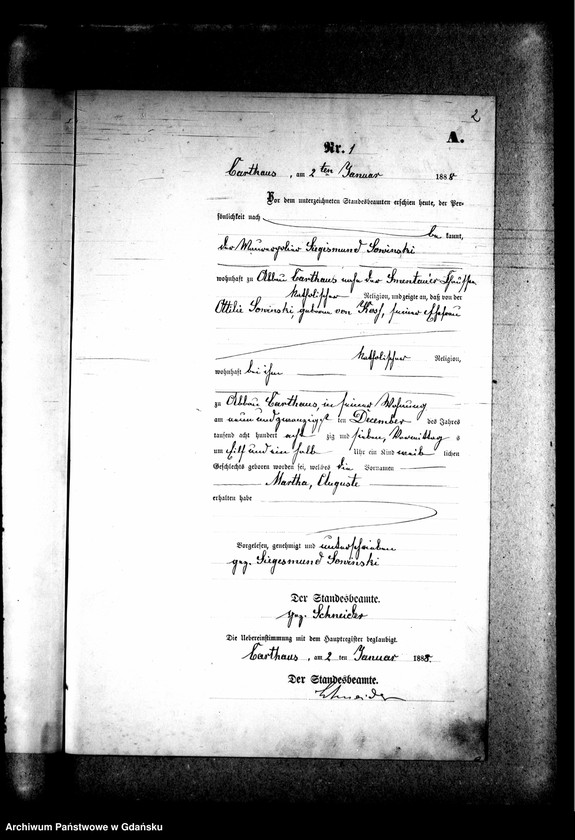 2
A.
Nr. 1
Carthaus, am 2ten Januar 1888
Vor dem unterzeichneten Standesbeamten erschien heute, der Per-
sönlichkeit nach
be kannt,
der Maurerpolier Siegismund Sowinski
wohnhaft zu Abbau Carthaus nahe der Chaussee
katholischer Religion, und zeigte an, daß von der
Ottilie Sowinski, geborene von Koss, seiner Ehefrau
katholischer Religion,
wohnhaft bei ihm
zu Abbau Carthaus, in seiner Wohnung
am neun und zwanzigsten December des Jahres
tausend acht hundert acht zig und sieben, Vormittags
um eilf und ein halb Uhr ein Kind weib lichen
Geschlechts geboren worden sei, welches die Vornamen
Martha, Auguste
erhalten habe
Vorgelesen, genehmigt und unterschrieben
gez. Siegesmund Sowinski
Der Standesbeamte.
gez. Schneider
Die Uebereinstimmung mit dem Hauptregister beglaubigt.
Carthaus, am 2 ten Januar 1888.
Der Standesbeamte.
Schneider
Archiwum Państwowe w Gdańsku